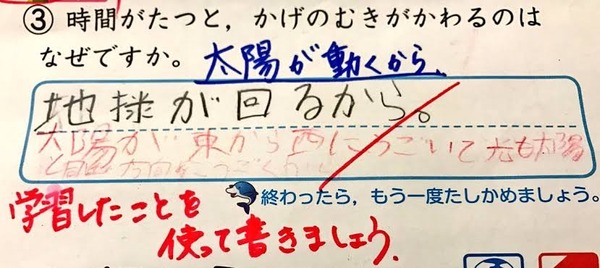 ③ 時間がたつと，かげのむきがかわるのは
なぜですか。
太陽が動くから、
地球が回るから。
太陽が東から西にうごいて光も太陽
と同じ方向をうごくから
学習したことを
使って書きましょう。
終わったら，もう一度たしかめましょう。